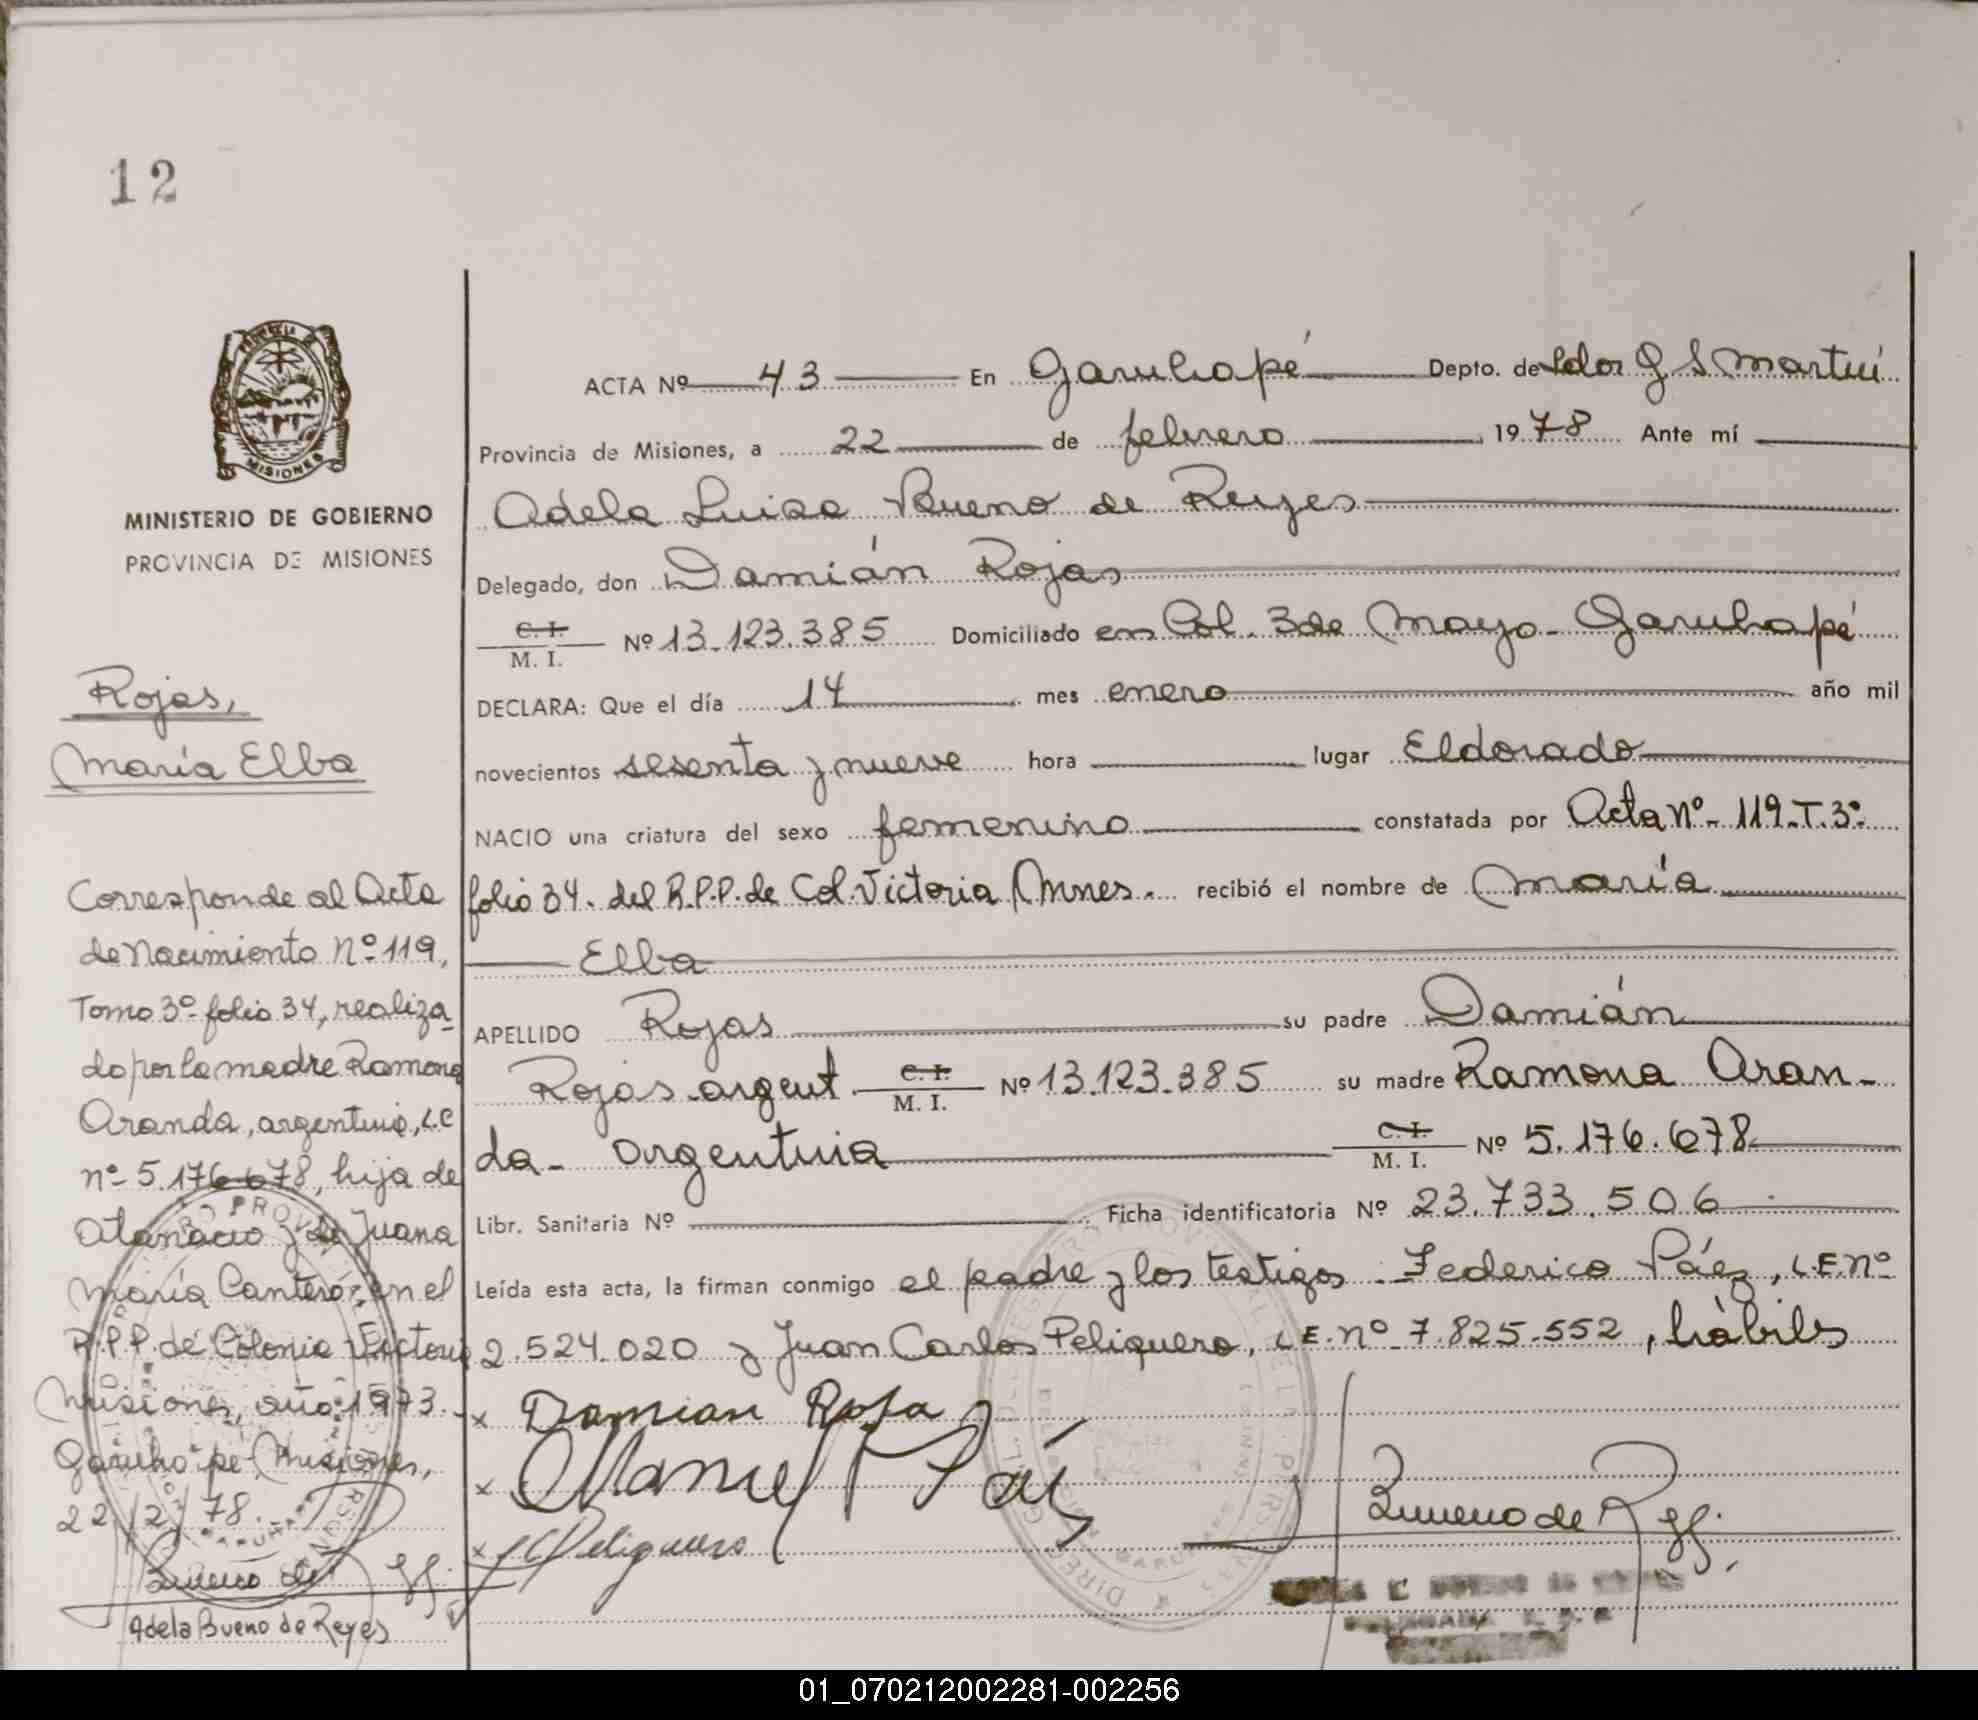 12
PROVINCIA
MISIONES
MINISTERIO DE GOBIERNO
PROVINCIA DE MISIONES
Rojas,
María Elba
Corresponde al Acta
de Nacimiento Nº 119,
Tomo 3º folio 34, realiza-
do por la madre Ramona
Aranda, argentina, L.C
nº 5.176.678, hija de
Atanacio y de Juana
María Cantero, en el
R.P.P. de Colonia Victoria
Misiones, año 1973.
Garuhapé, Misiones,
22/2/78.
Bueno de
Adela Bueno de Reyes
ACTA Nº 43 En Garuhapé Depto. de Ldor G S Martín
Provincia de Misiones, a 22 de febrero 1978 Ante mí
Adela Luisa Bueno de Reyes
Delegado, don Damián Rojas
C. I.
M. I. Nº 13.123.385 Domiciliado en Col. 3 de Mayo - Garuhapé
DECLARA: Que el día 14 mes enero año mil
novecientos sesenta y nueve hora lugar Eldorado
NACIO una criatura del sexo femenino constatada por Acta Nº 119-T.3º
folio 34. del R.P.P. de Col. Victoria Mnes. recibió el nombre de María
Elba
APELLIDO Rojas su padre Damián
Rojas-argent. C. I. M. I. Nº 13.123.385 su madre Ramona Aran-
da- argentina C. I. M. I. Nº 5.176.678
Libr. Sanitaria Nº Ficha identificatoria Nº 23.733.506
Leída esta acta, la firman conmigo el padre y los testigos Federico Páez, L.E. Nº
2.524.020 y Juan Carlos Peliquero, L.E. nº 7.825.552, hábiles
x Damian Roja
x Manuel Páez
x Peliquero
Bueno de
01_070212002281-002256